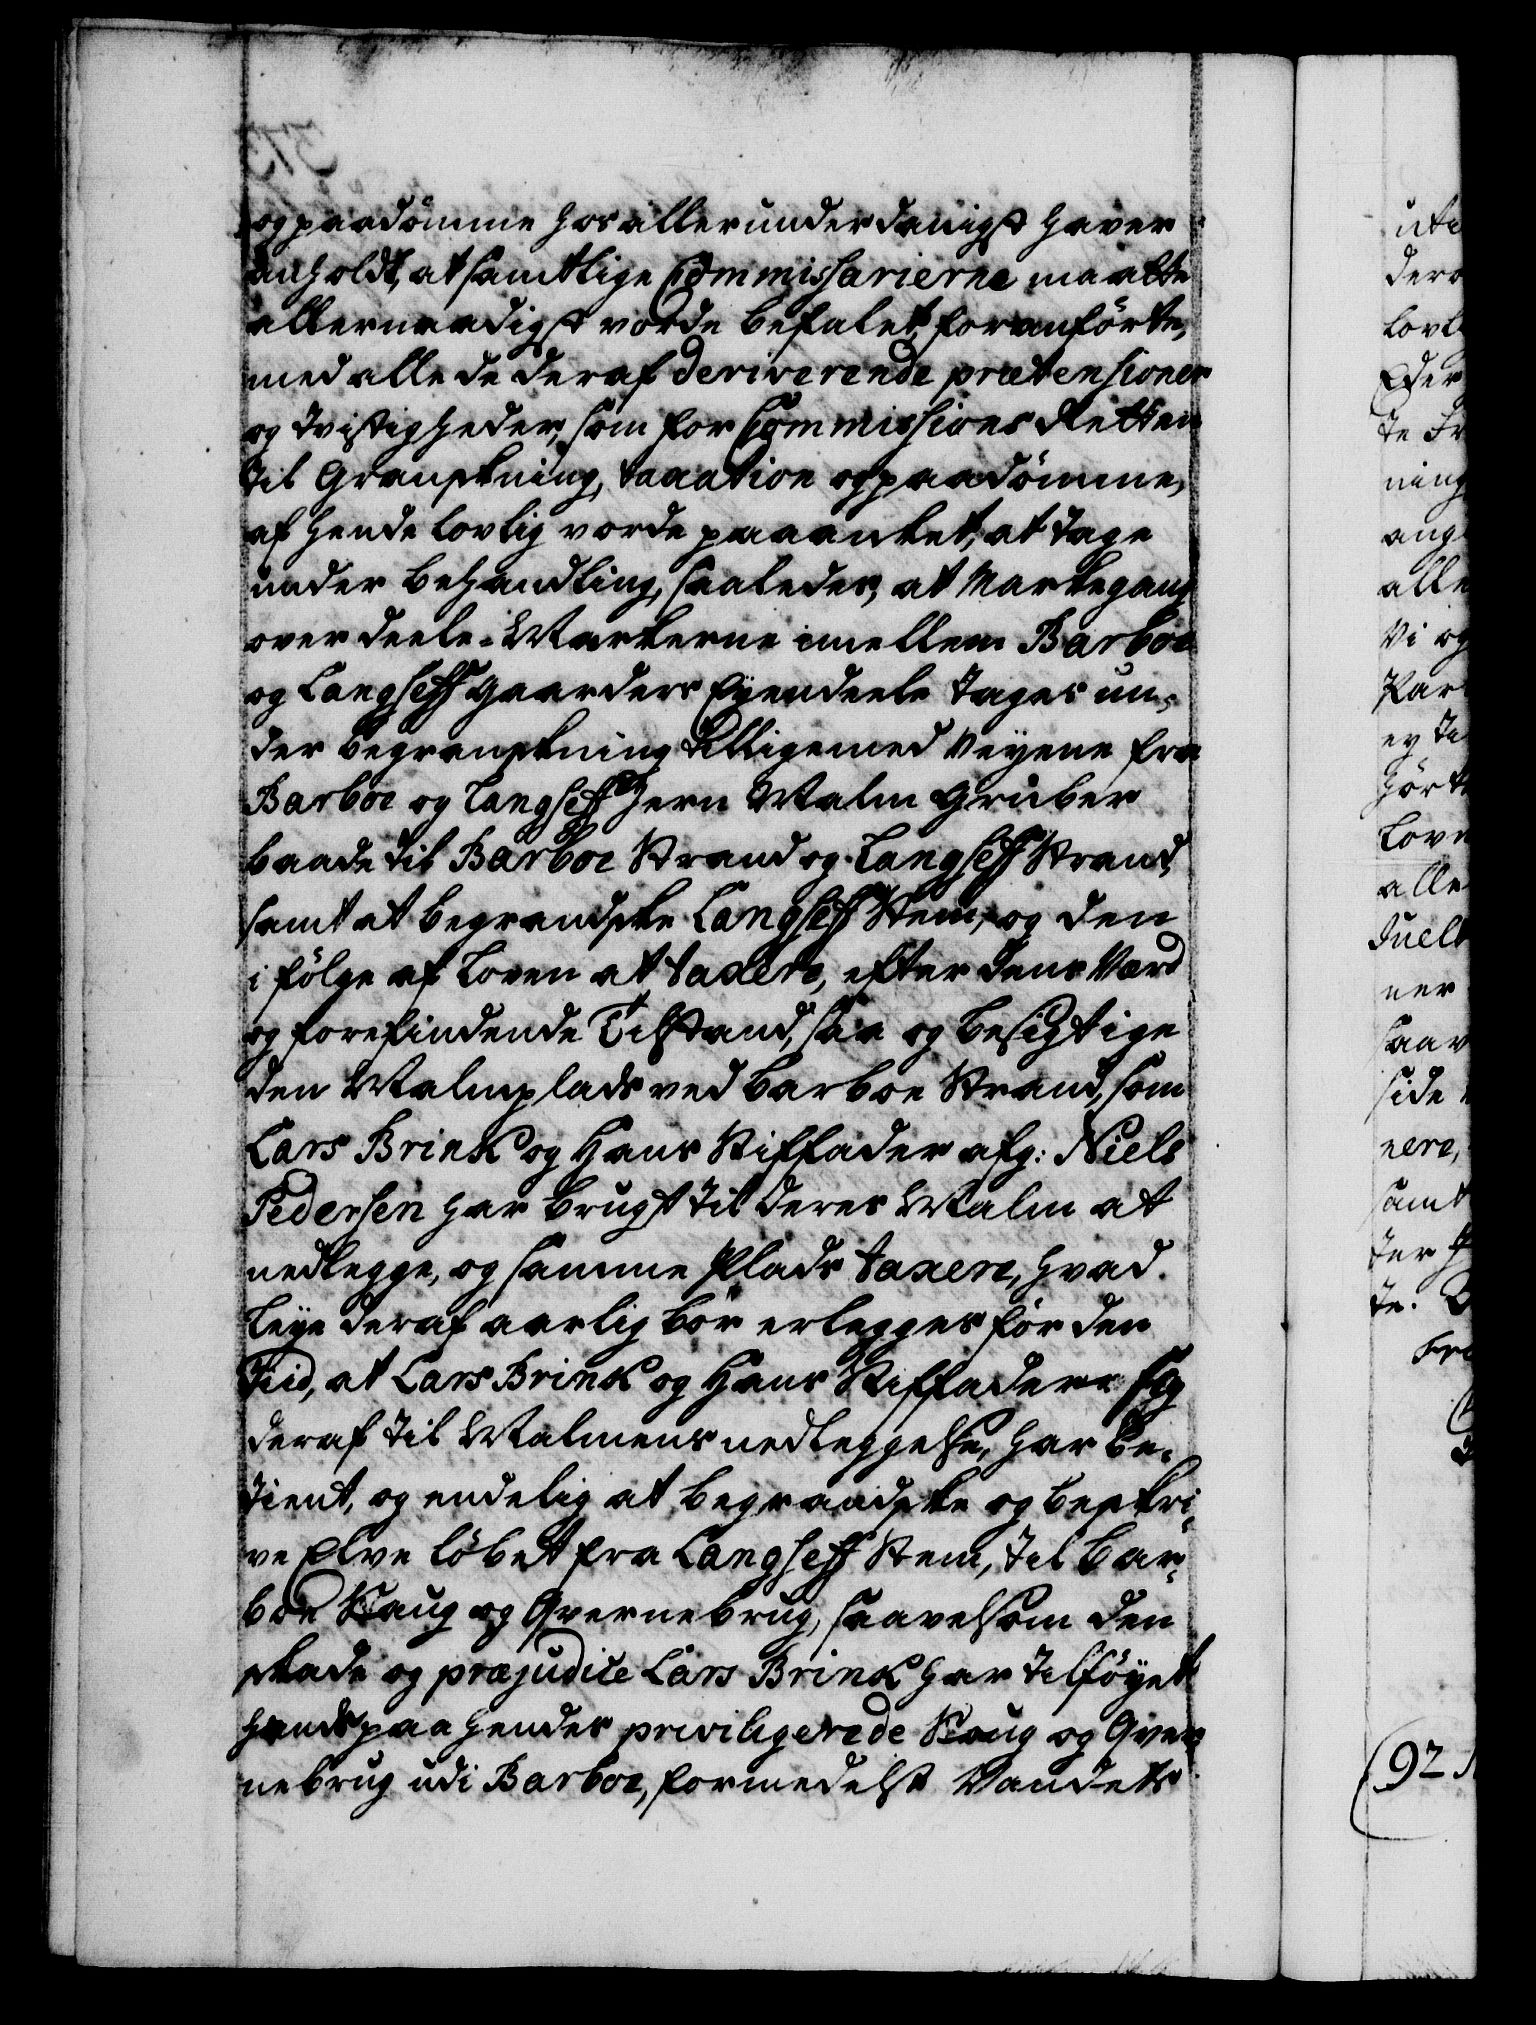 og paadömme hos allerunderdanigst haver
anholdt, at samtlige Commissarierne maatte
allernaadigst vorde befalet, foranförte,
med alle de deraf deriverende prætensioner
og tvistigheder, som for Commissions Retten
til Granskning, taxation og paadömme,
af hende lovlig vorde paaanket, at tage
under behandling, saaledes, at Markegang
over deele-Markerne imellem Barboe
og Langseff Gaarders Eyendeele tages un-
der begranskning tilligemed Veyene fra
Barboe og Langseff Jern Malm Gruber
baade til Barboe Strand og Langseff Strand,
samt at begrandske Langseff Stem, og den
i fölge af Loven at taxere, efter dens Værd
og forefindende Tilstand, saa og besigtige
den Malmplads ved Barboe Strand, som
Lars Brink og Hans Stiffader afg: Niels
Pedersen har brugt til deres Malm at
nedlegge, og samme Plads taxere, hvad
Leye deraf aarlig bör erlegges för den
Tiid, at Lars Brink og Hans Stiffader sig
deraf til Malmens nedleggelse, har be-
tient, og endelig at begrandske og beskri-
ve Elve löbet fra Langseff Stem, til Bar-
boe Saug og Qvernebrug, saavelsom den
skade og præjudice Lars Brink har tilföyet
hende paa hendes privilegerede Saug og Qver-
nebrug udi Barboe, formedelst Vandets